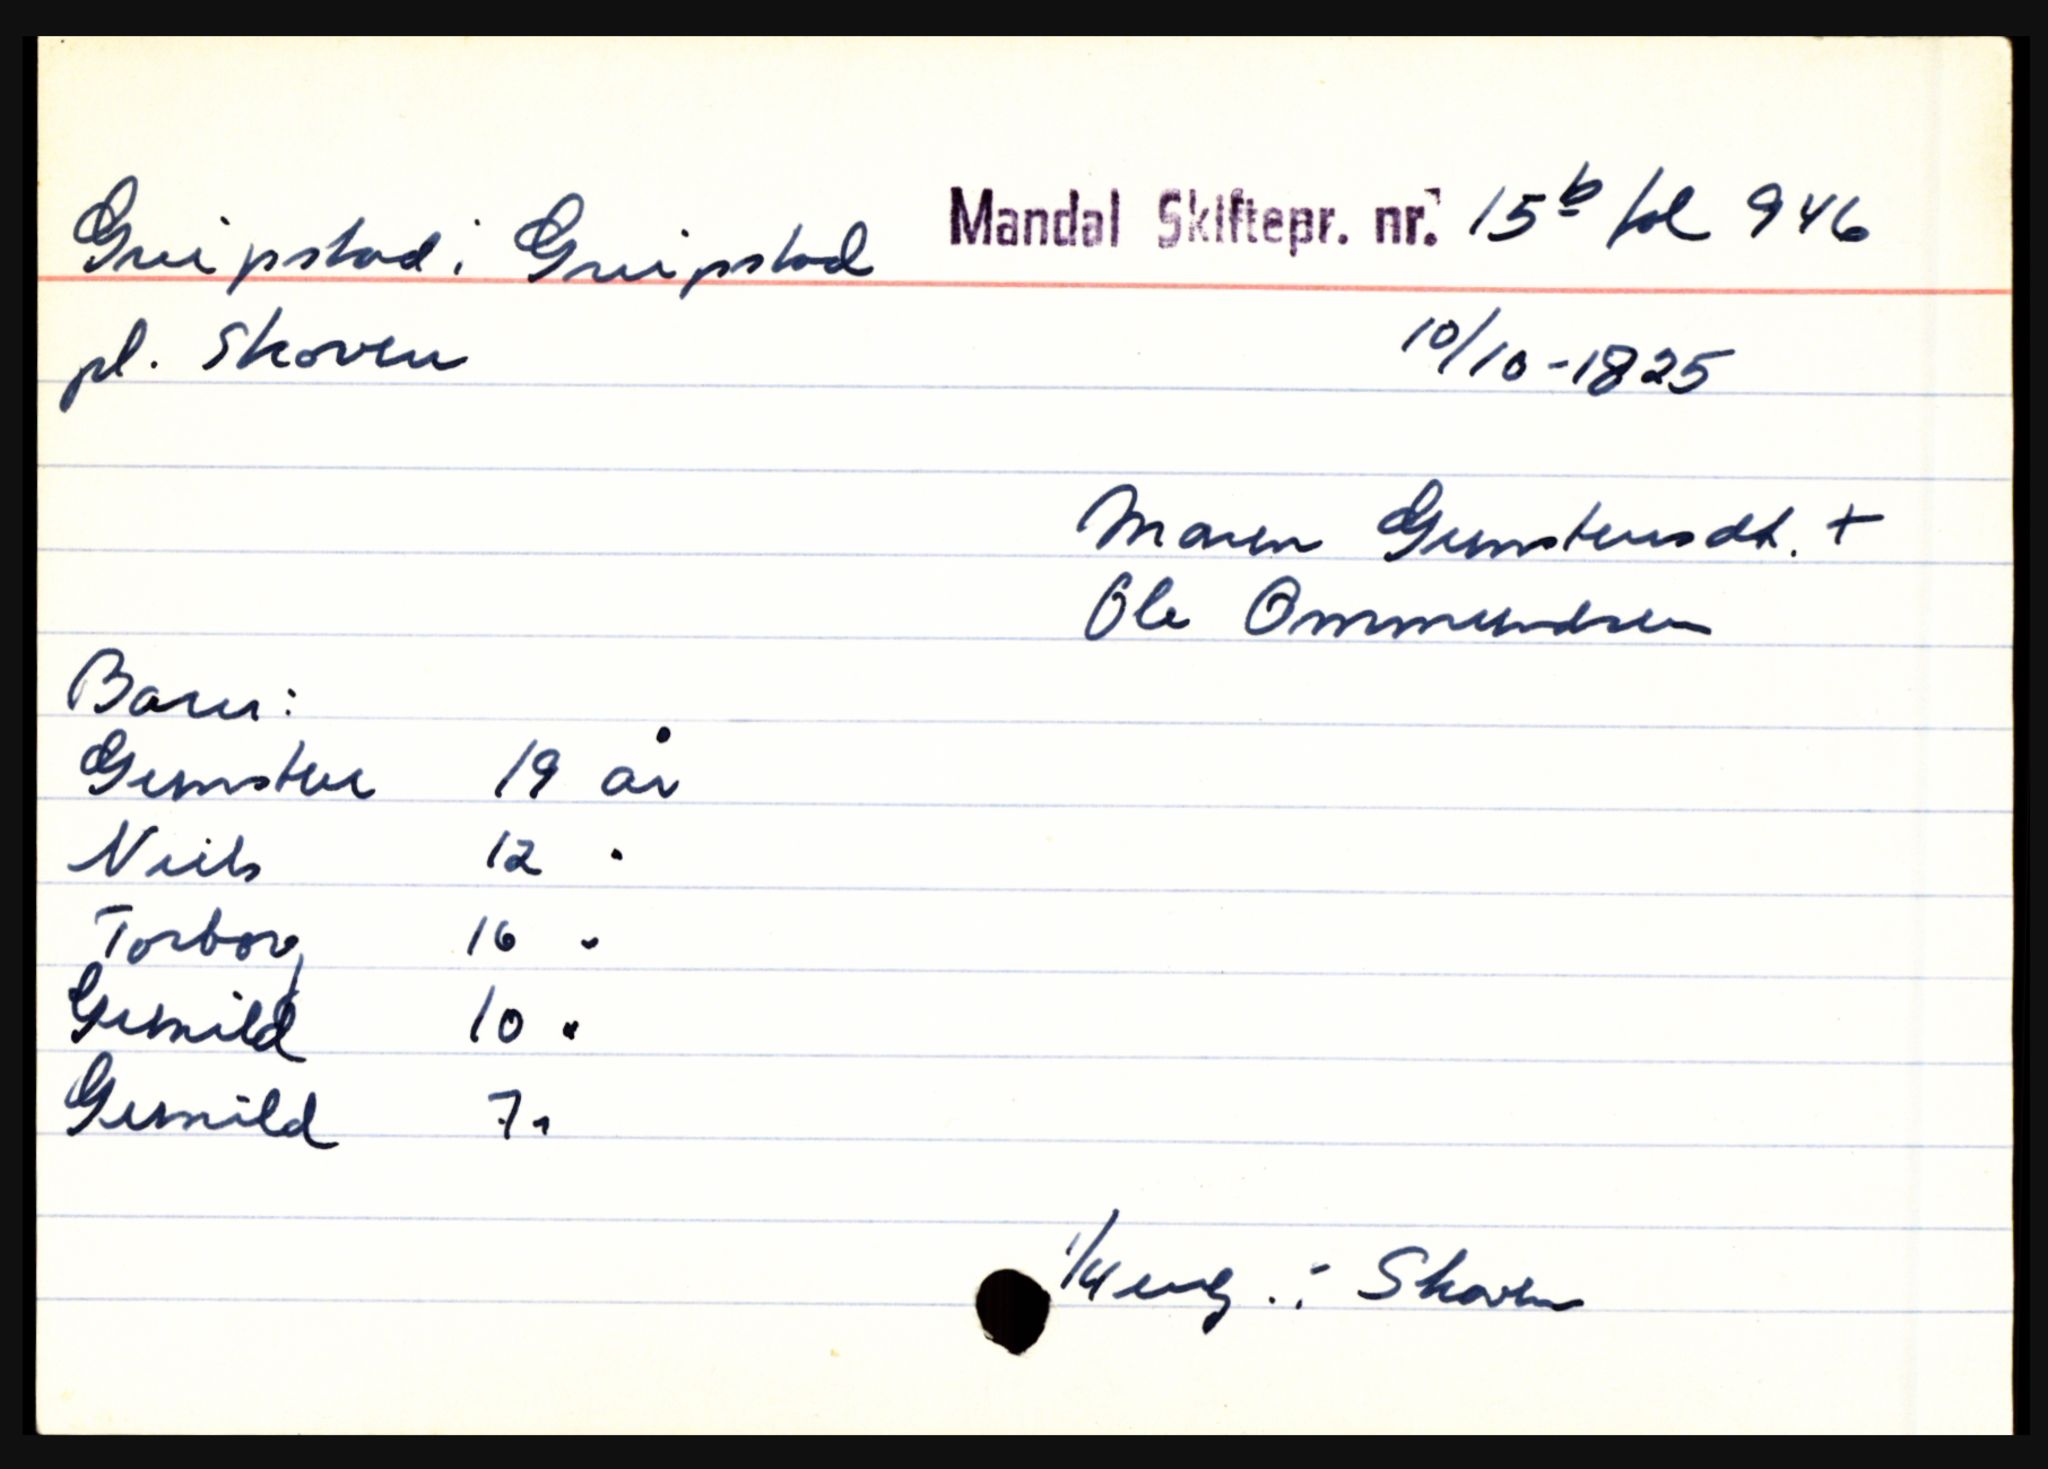 Greipstad i Greipstad Mandal Skiftepr. nr. 15b fol 946
pl. Skoven 10/10-1825
Maren Gunstensdt. +
Ole Ommundsen
Barn:
Gunsten 19 år
Niels 12 "
Torborg 16 "
Gunild 10 "
Gunild 7 "
1/4 eng . : Skoven